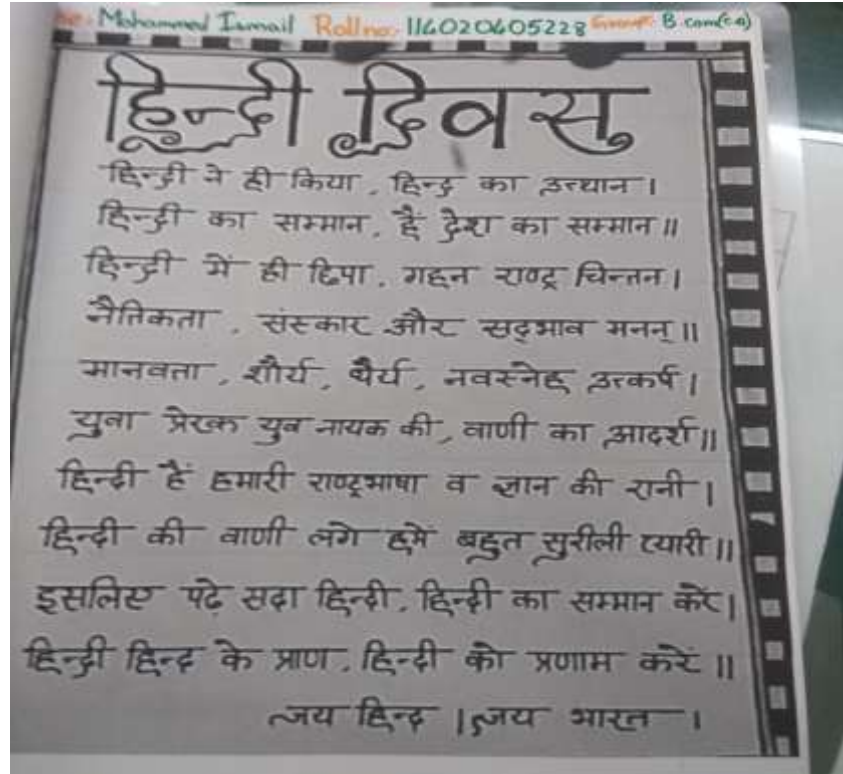 Name: Mohammed Ismail Roll no: 114020405228 Group: B.com(ca)
हिन्दी दिवस
हिन्दी ने ही किया, हिन्द का उत्थान।
हिन्दी का सम्मान, हैं देश का सम्मान॥
हिन्दी में ही छिपा, गहन राष्ट्र चिन्तन।
नैतिकता, संस्कार और सद्भाव मनन्॥
मानवता, शौर्य, धैर्य, नवस्नेह उत्कर्ष।
युवा प्रेरक युव नायक की, वाणी का आदर्श॥
हिन्दी हैं हमारी राष्ट्रभाषा व ज्ञान की रानी।
हिन्दी की वाणी लगे हमे बहुत सुरीली प्यारी॥
इसलिए पढे सदा हिन्दी, हिन्दी का सम्मान करें।
हिन्दी हिन्द के प्राण, हिन्दी को प्रणाम करें॥
जय हिन्द। जय भारत।